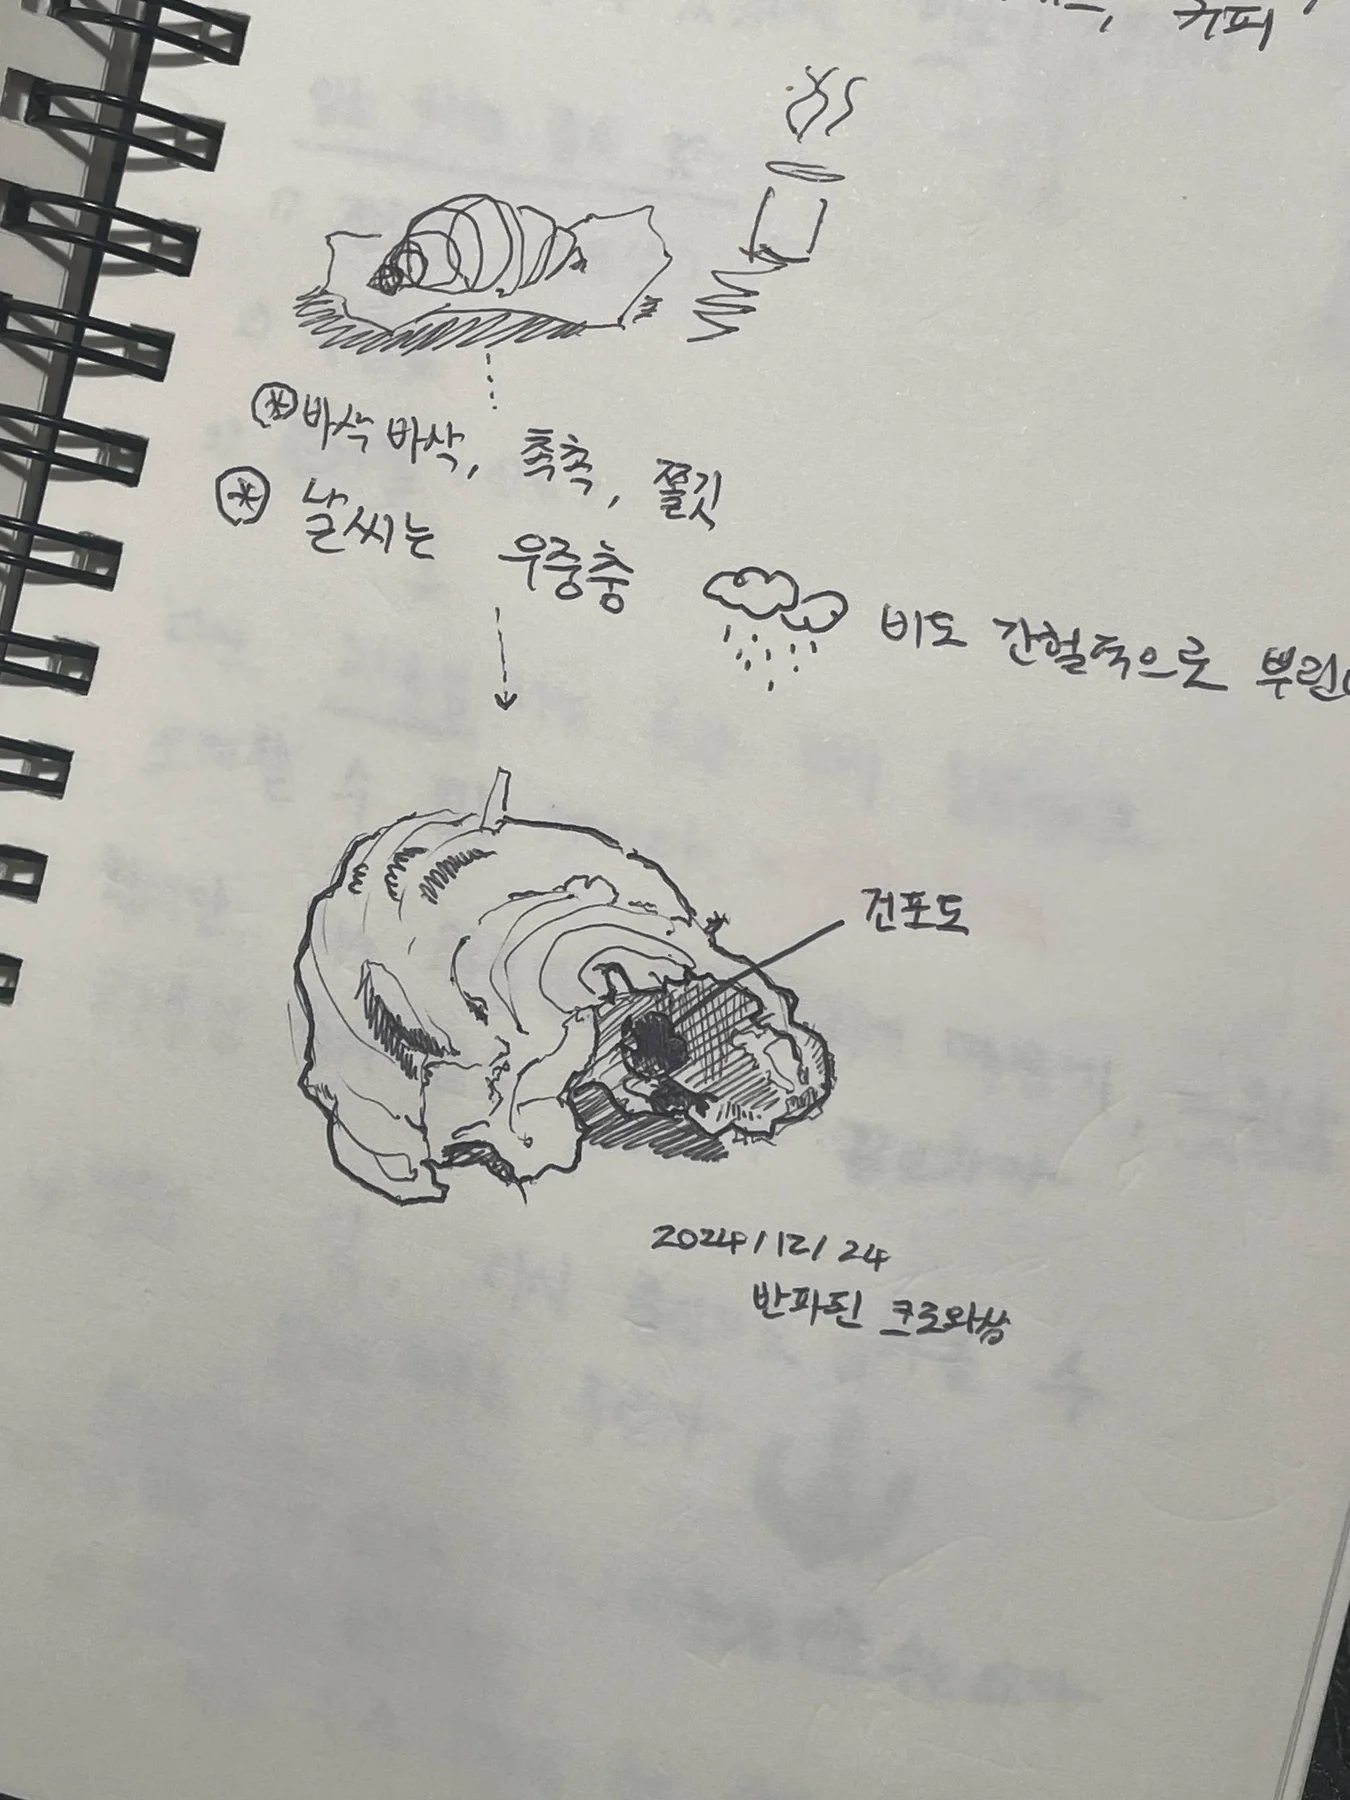 커피
⊛ 바삭바삭, 촉촉, 쫄깃
⊛ 날씨는 우중충 비도 간헐적으로 뿌린
건포도
2024/12/24
반파된 크로와상